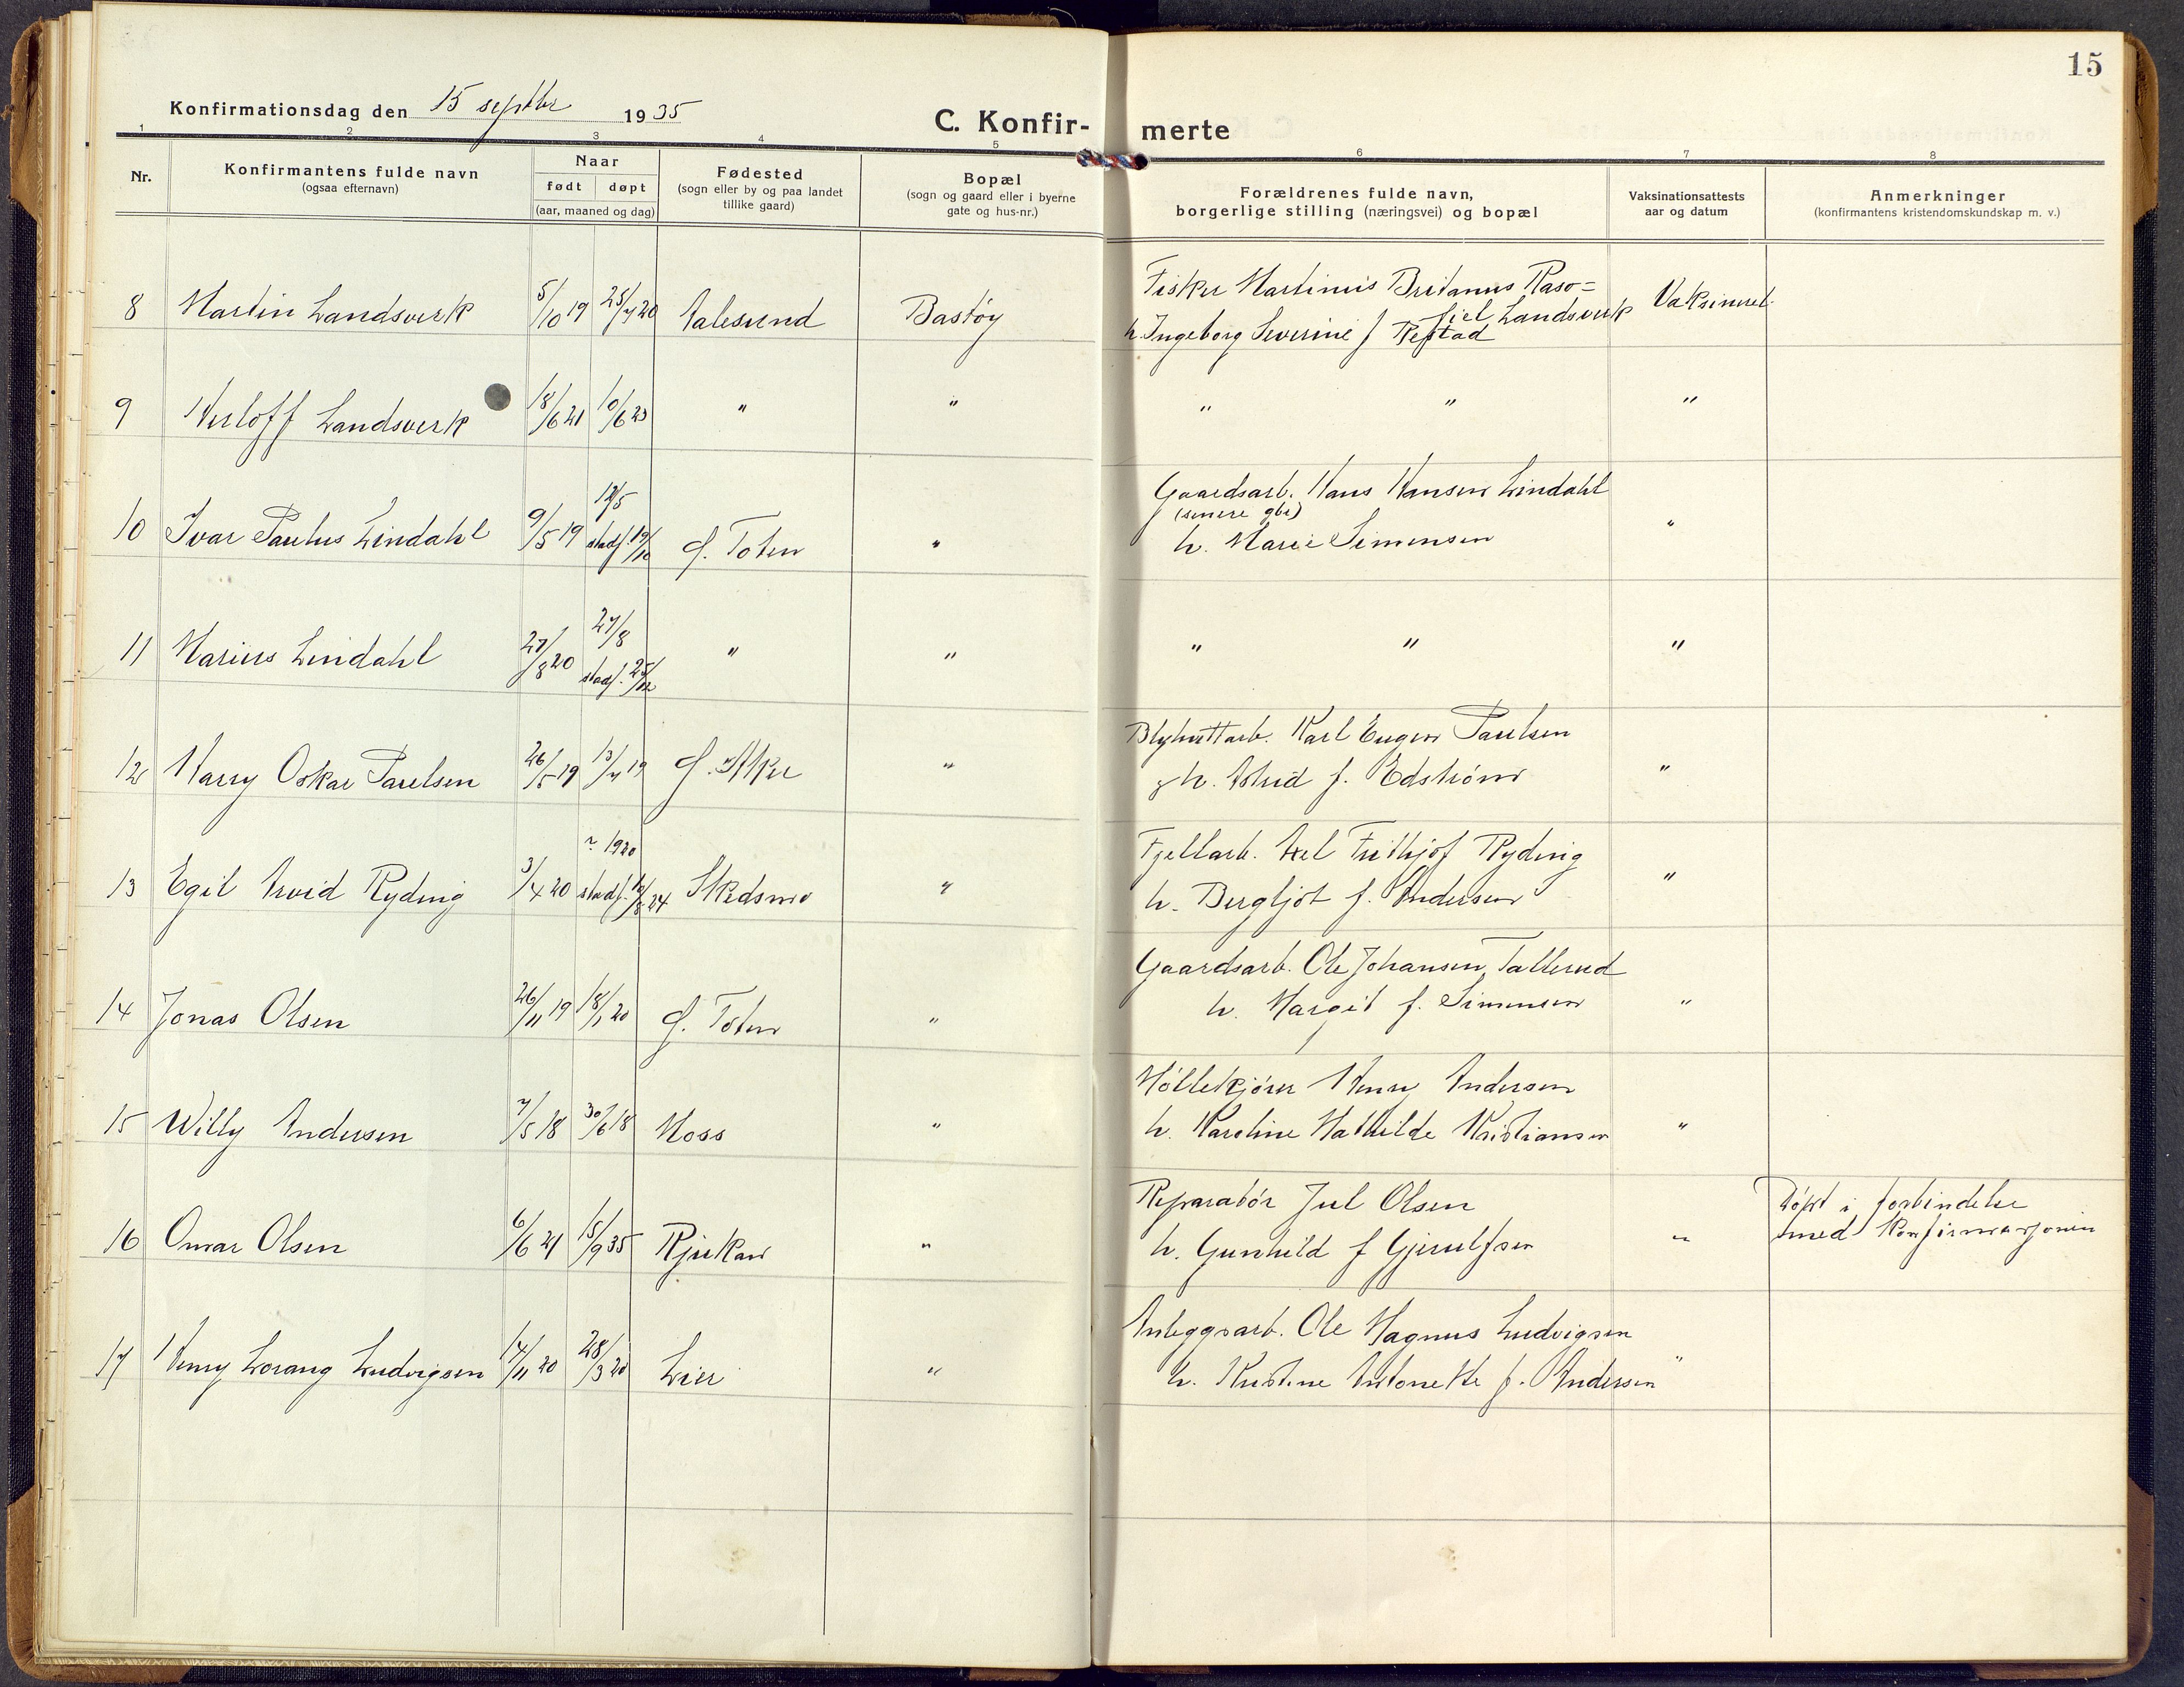 15
Konfirmationsdag den 15 septbr 1935
C. Konfir-merte
1 2 3 4 5 6 7 8
Nr.
Konfirmantens fulde navn
(ogsaa efternavn)
Naar
født døpt
(aar, maaned og dag)
Fødested
(sogn eller by og paa landet
tillike gaard)
Bopæl
(sogn og gaard eller i byerne
gate og hus-nr.)
Forældrenes fulde navn,
borgerlige stilling (næringsvei) og bopæl
Vaksinationsattests
aar og datum
Anmerkninger
(konfirmantens kristendomskundskap m. v.)
8 Martin Landsverk 5/10 19 25/7 20 Aalesund Bastøy
Fisker Martinus Britanus Raso=
fiel Landsverk
h. Ingeborg Severine f Restad
Vaksinert
9 Herloff Landsverk 18/6 21 10/6 23 " "
" " "
10 Ivar Paulus Lindahl 9/5 19 12/5
stadf. 19/10 Ø. Toten "
Gaardsarb. Hans Hansen Lindahl
(senere gbr)
h. Marie Simensen "
11 Marius Lindahl 27/8 20 27/8
stadf. 25/12 " "
" " "
12 Harry Oskar Paulsen 26/5 19 13/7 19 Ø. Aker "
Blyhuttarb. Karl Eugen Paulsen
& h. Astrid f. Edstrøm "
13 Egil Arvid Ryding 3/4 20 ? 1920
stadf. 10/8 24 Skedsmo "
Fjellarb. Axel Frithjof Ryding
h. Bergljot f. Andersen "
14 Jonas Olsen 26/11 19 18/1 20 Ø. Toten "
Gaardsarb. Ole Johansen Tallerud
h. Margit f. Simensen "
15 Willy Andersen 7/5 18 30/6 18 Moss "
Møllekjører Henry Andersen
h. Karoline Mathilde Kristiansen "
16 Omar Olsen 6/6 21 15/9 35 Rjukan "
Reparatør Jul Olsen
h. Gunhild f Gjerulfsen "
Døpt i forbindelse
med konfirmasjonen
17 Henry Lorang Ludvigsen 14/11 20 28/3 20 Lier "
Anleggsarb. Ole Magnus Ludvigsen
h. Kristine Antonette f. Andersen "